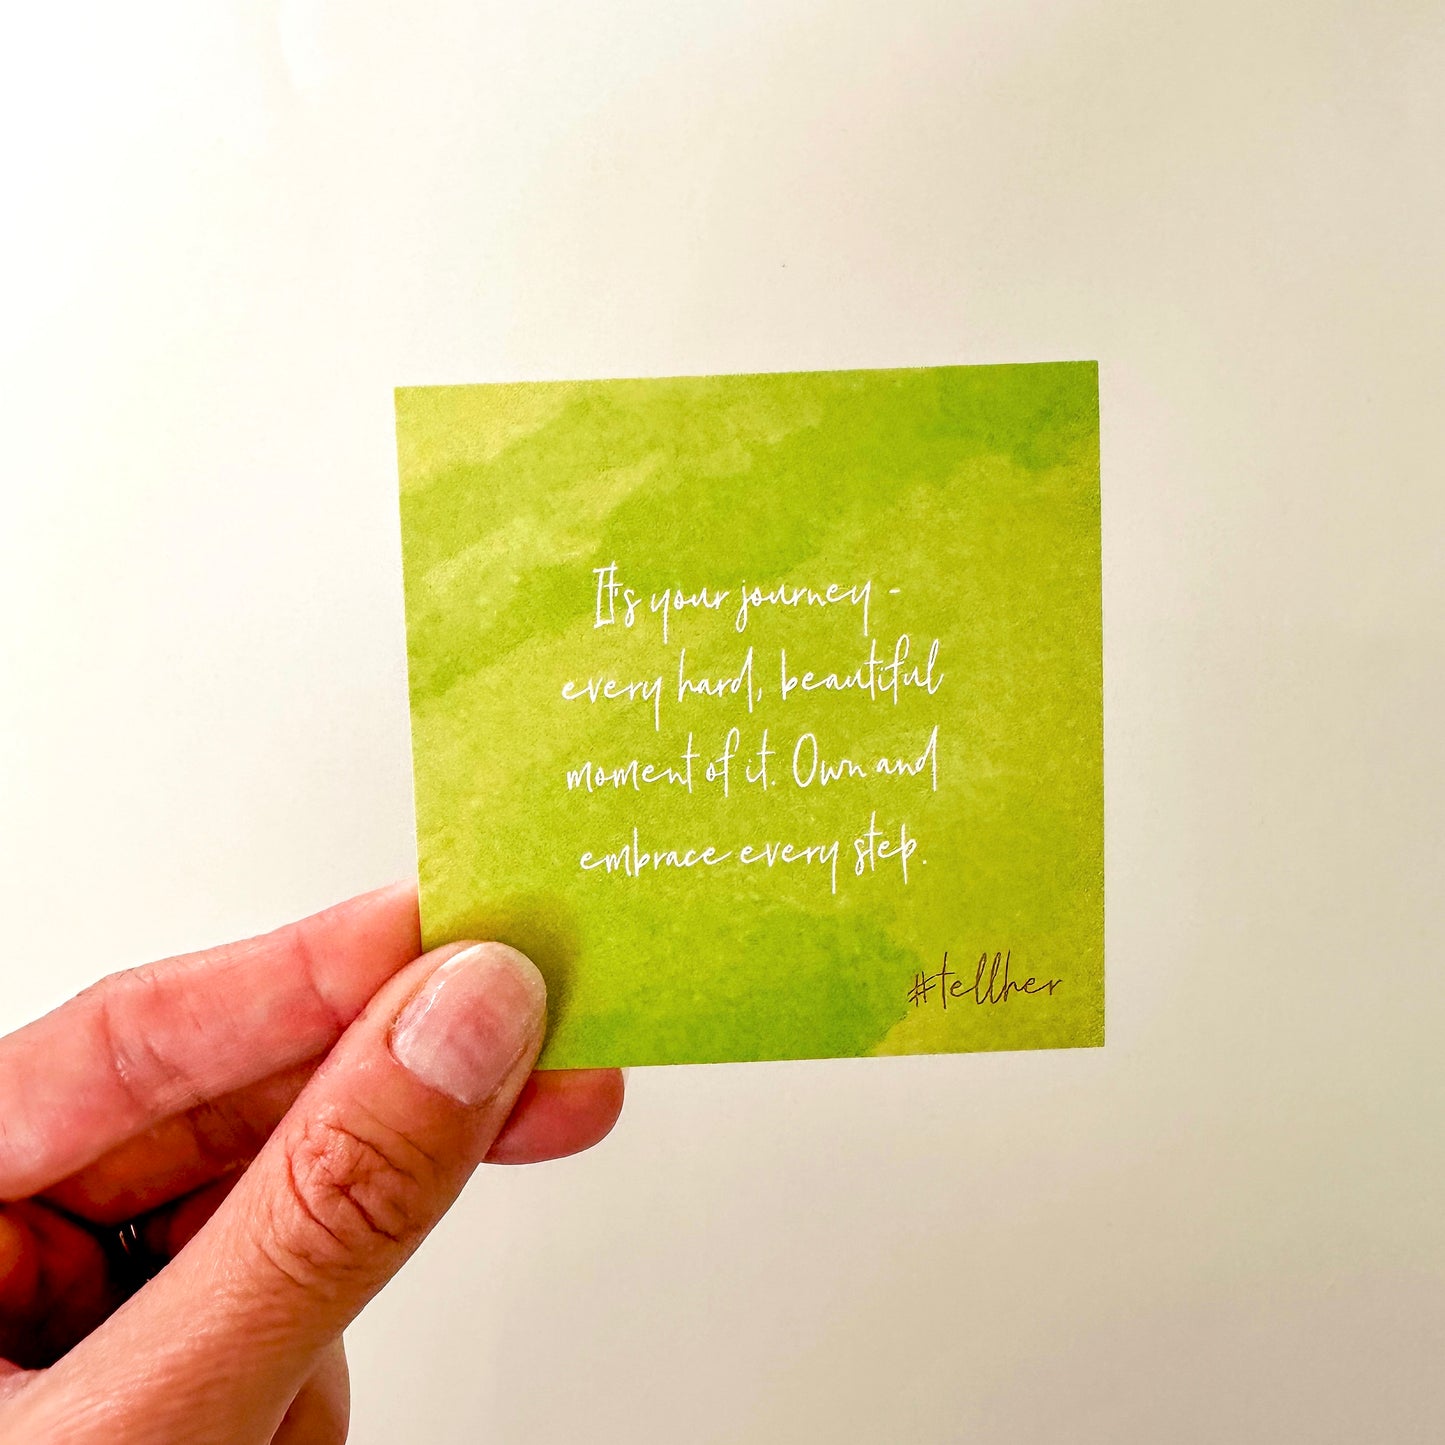 It's your journey -
every hard, beautiful
moment of it. Own and
embrace every step.
#tellher